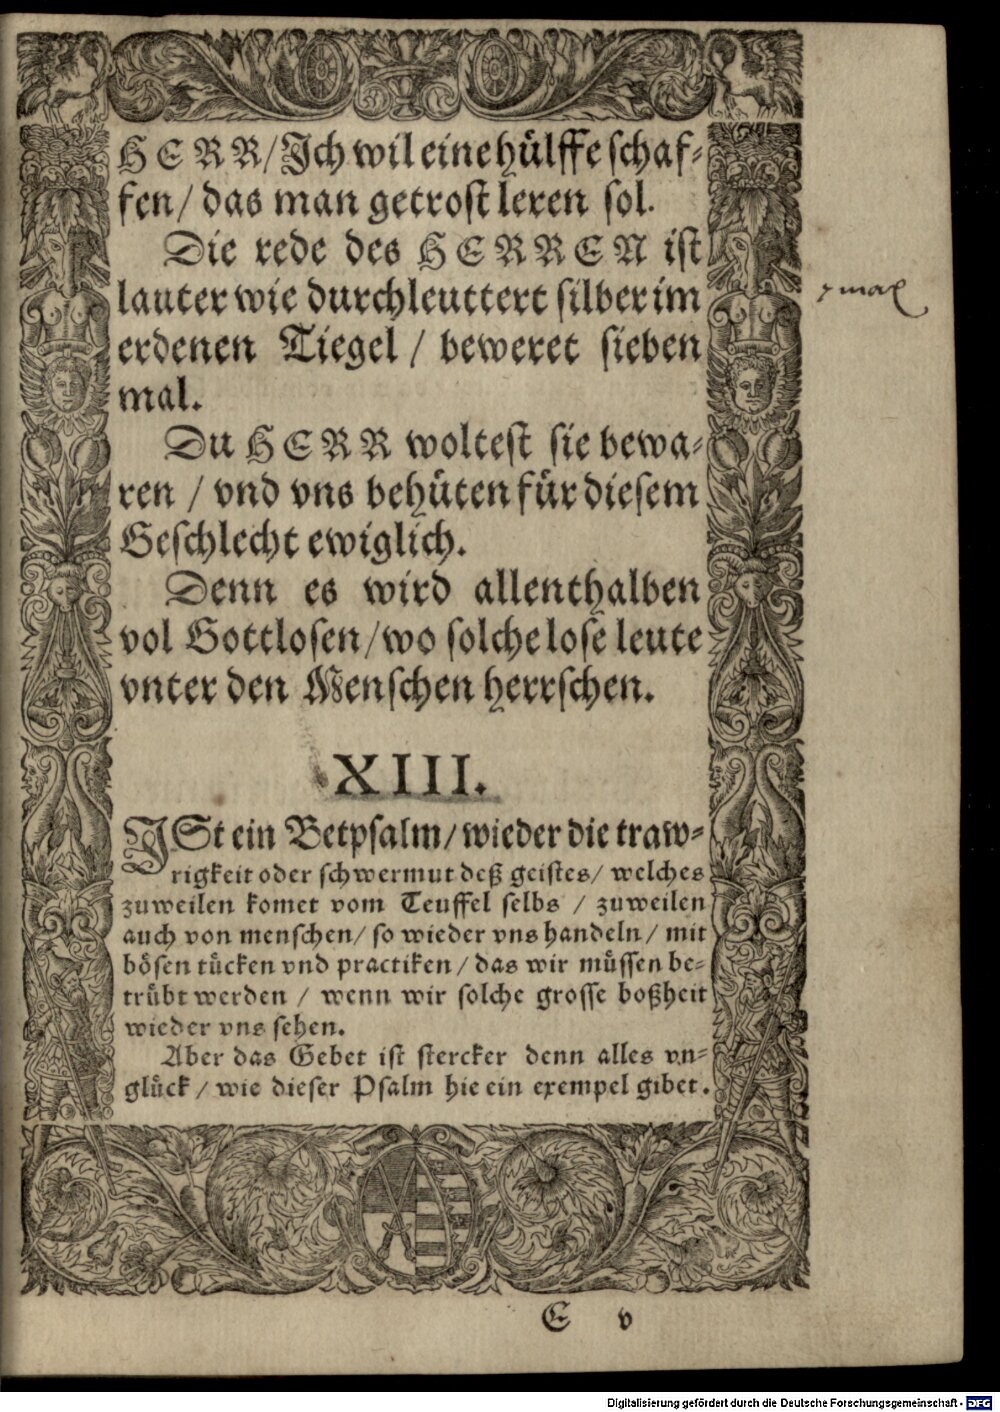 HERR/Ich wil eine hülffe schaf-
fen/ das man getrost leren sol.
Die rede des HERREN ist
lauter wie durchleuttert silber im
erdenen Tiegel / beweret sieben
mal.
7 mal
Du HERR woltest sie bewa-
ren / vnd vns behüten für diesem
Geschlecht ewiglich.
Denn es wird allenthalben
vol Gottlosen/wo solche lose leute
vnter den Menschen herrschen.
XIII.
ISt ein Betpsalm/wieder die traw-
rigkeit oder schwermut deß geistes/ welches
zuweilen komet vom Teuffel selbs / zuweilen
auch von menschen/ so wieder vns handeln/ mit
bösen tücken vnd practiken/ das wir müssen be-
trübt werden / wenn wir solche grosse boßheit
wieder vns sehen.
Aber das Gebet ist stercker denn alles vn-
glück/ wie dieser Psalm hie ein exempel gibet.
E v
Digitalisierung gefördert durch die Deutsche Forschungsgemeinschaft - DFG